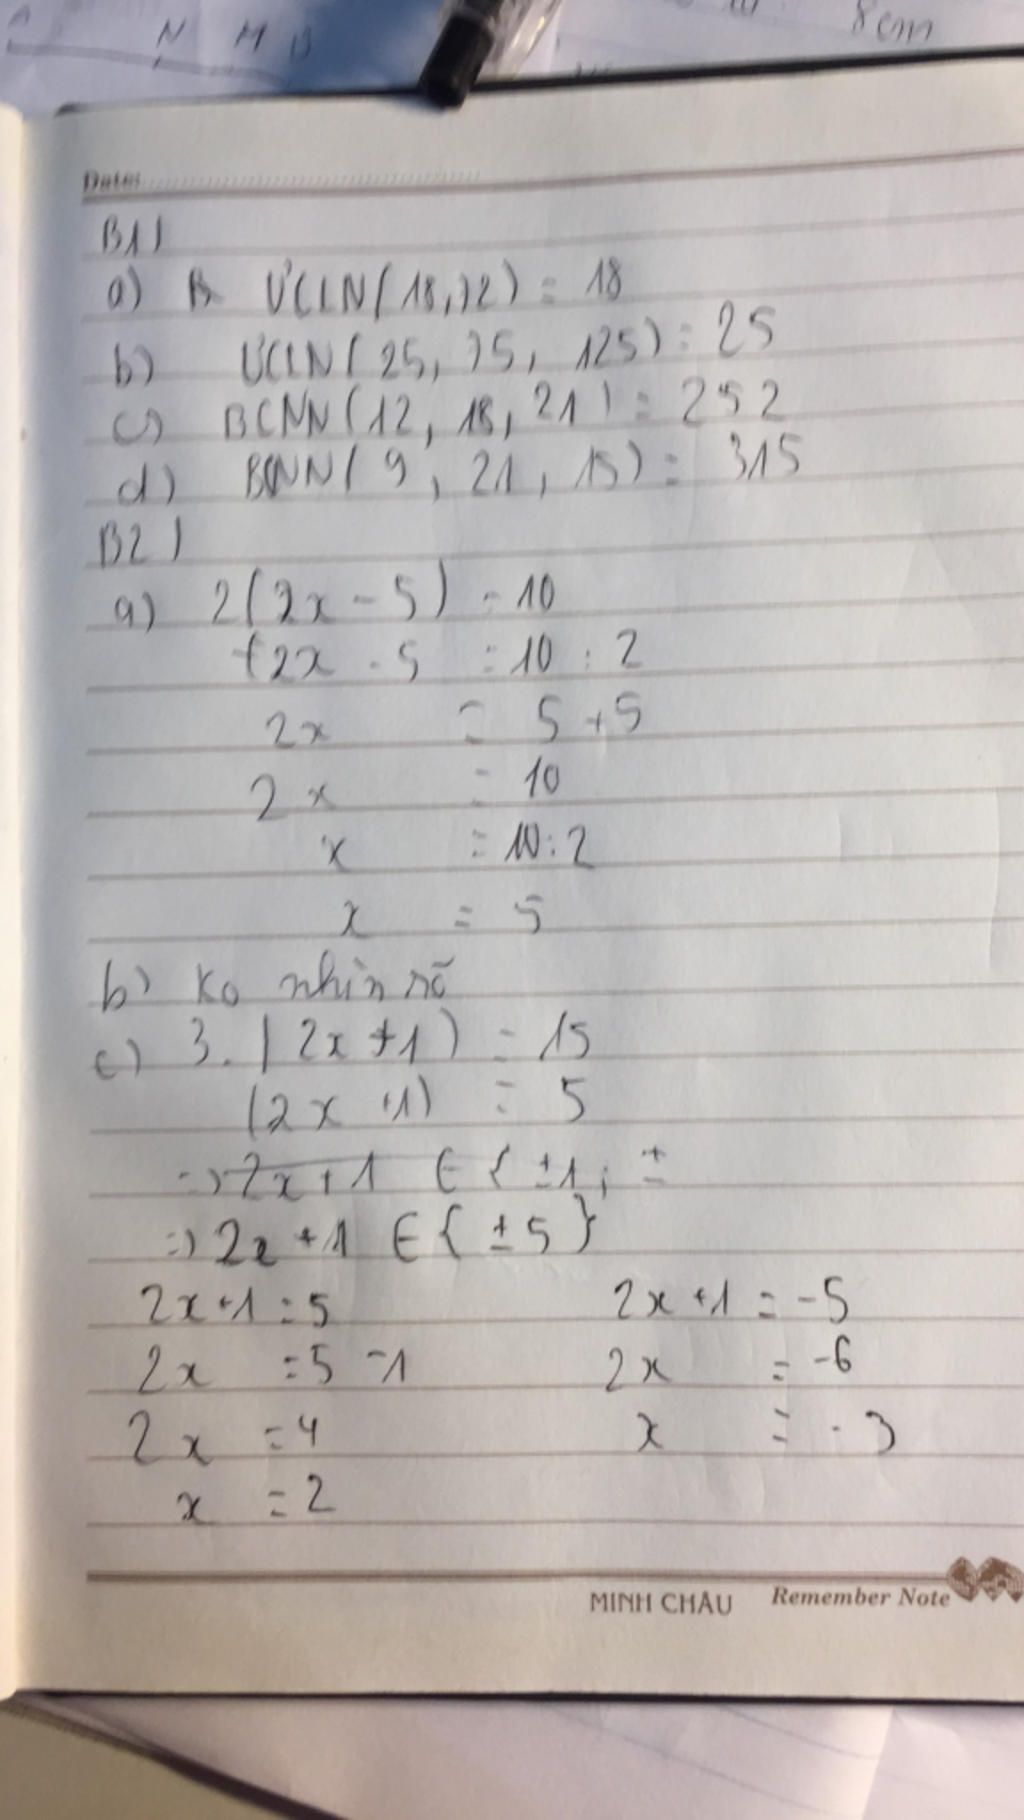 N M B
8cm
Date:
B1)
a) ƯCLN(18,72) = 18
b) ƯCLN(25, 75, 125) = 25
c) BCNN(12, 18, 21) = 252
d) BCNN(9, 21, 15) = 315
B2)
a) 2(2x - 5) = 10
2x - 5 = 10 : 2
2x = 5 + 5
2x = 10
x = 10 : 2
x = 5
b) Ko nhìn rõ
c) 3. |2x + 1) = 15
(2x + 1) = 5
=> 2x + 1 ∈ { ±1; ±
=> 2x + 1 ∈ { ±5 }
2x + 1 = 5 2x + 1 = -5
2x = 5 - 1 2x = -6
2x = 4 x = -3
x = 2
MINH CHÂU Remember Note